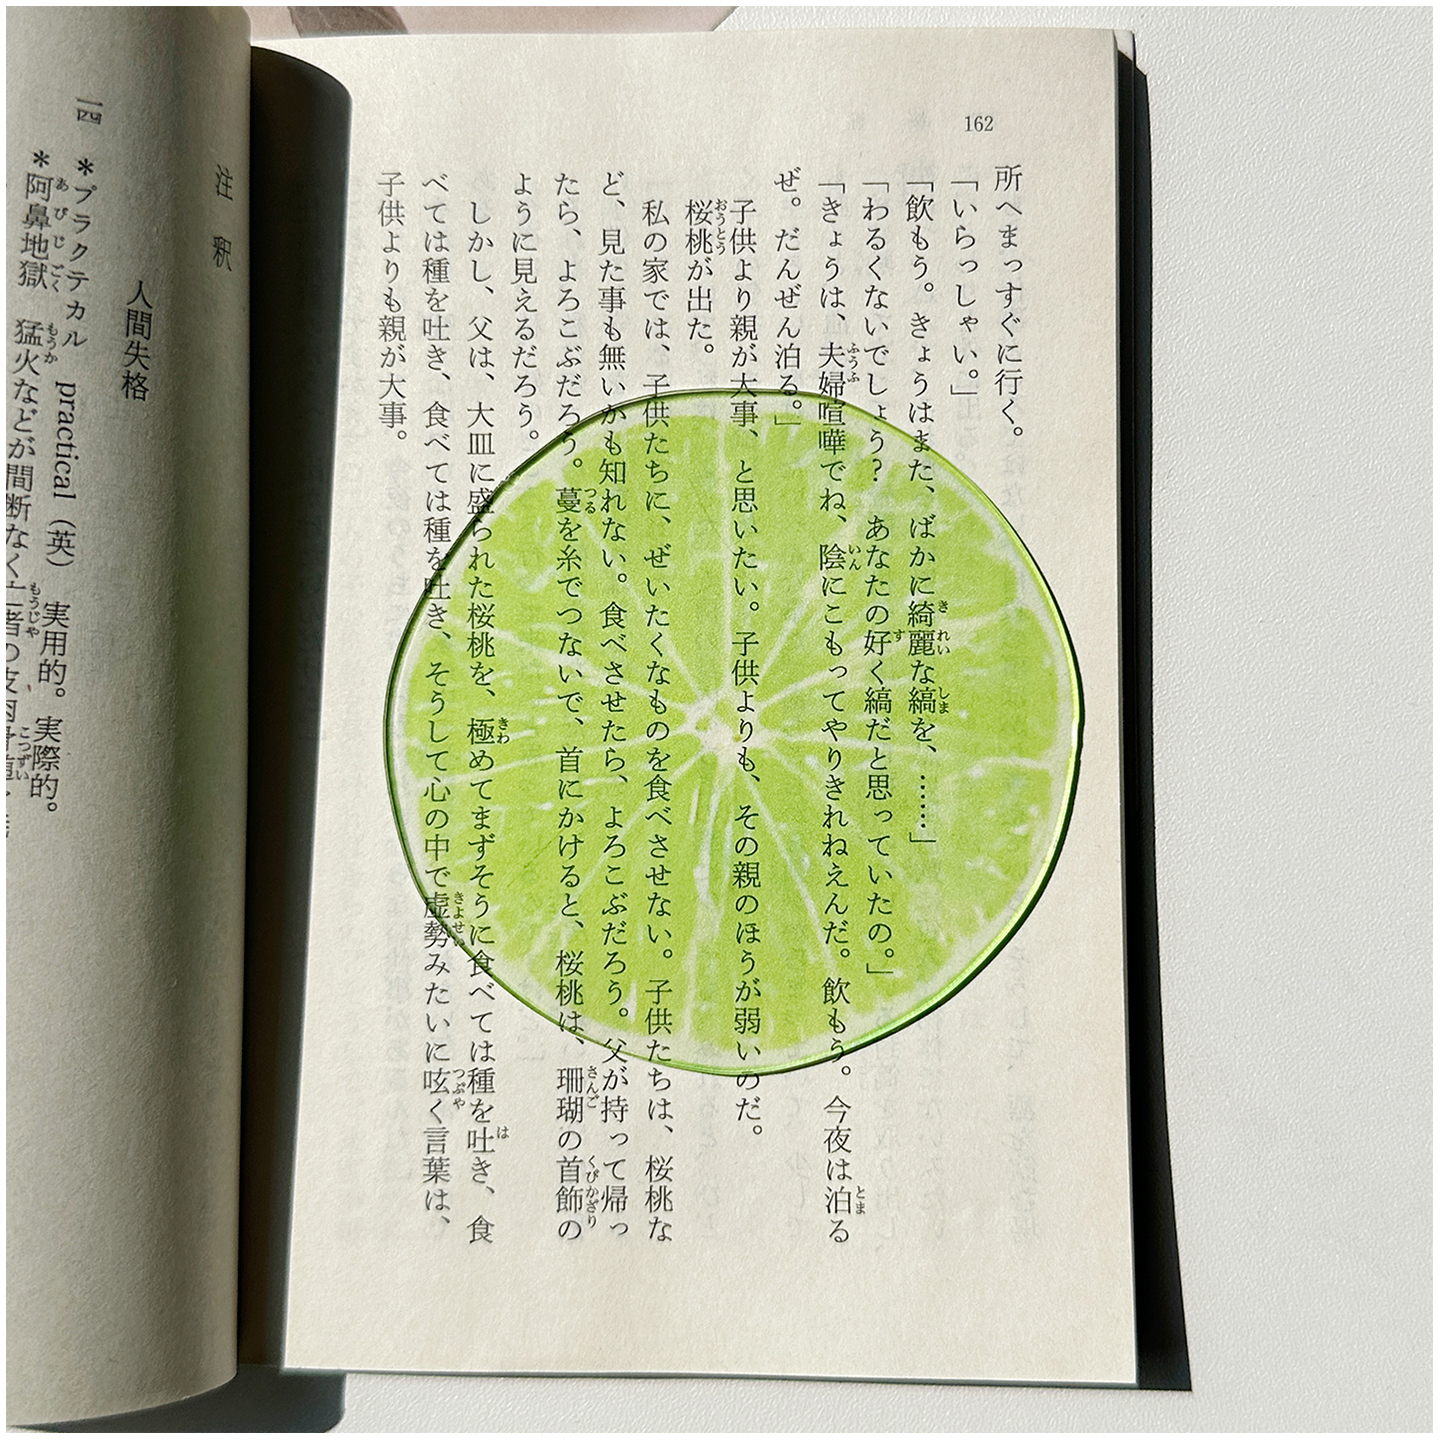 162
所へまっすぐに行く。
「いらっしゃい。」
「飲もう。きょうはまた、ばかに綺麗な縞を、……」
「わるくないでしょう？　あなたの好く縞だと思っていたの。」
「きょうは、夫婦喧嘩でね、陰にこもってやりきれねえんだ。飲もう。今夜は泊る
ぜ。だんぜん泊る。」
子供より親が大事、と思いたい。子供よりも、その親のほうが弱いのだ。
桜桃が出た。
私の家では、子供たちに、ぜいたくなものを食べさせない。子供たちは、桜桃な
ど、見た事も無いかも知れない。食べさせたら、よろこぶだろう。父が持って帰っ
たら、よろこぶだろう。蔓を糸でつないで、首にかけると、桜桃は、珊瑚の首飾の
ように見えるだろう。
しかし、父は、大皿に盛られた桜桃を、極めてまずそうに食べては種を吐き、食
べては種を吐き、食べては種を吐き、そうして心の中で虚勢みたいに呟く言葉は、
子供よりも親が大事。
注釈
人間失格
一四　＊プラクテカル　practical（英）　実用的。実際的。
＊阿鼻地獄　猛火などが間断なく亡者の皮肉骨髄